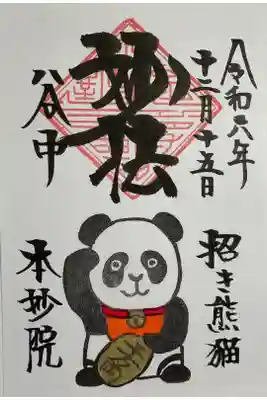 令和六年
十二月十五日
招き熊猫
妙法
谷中
本妙院